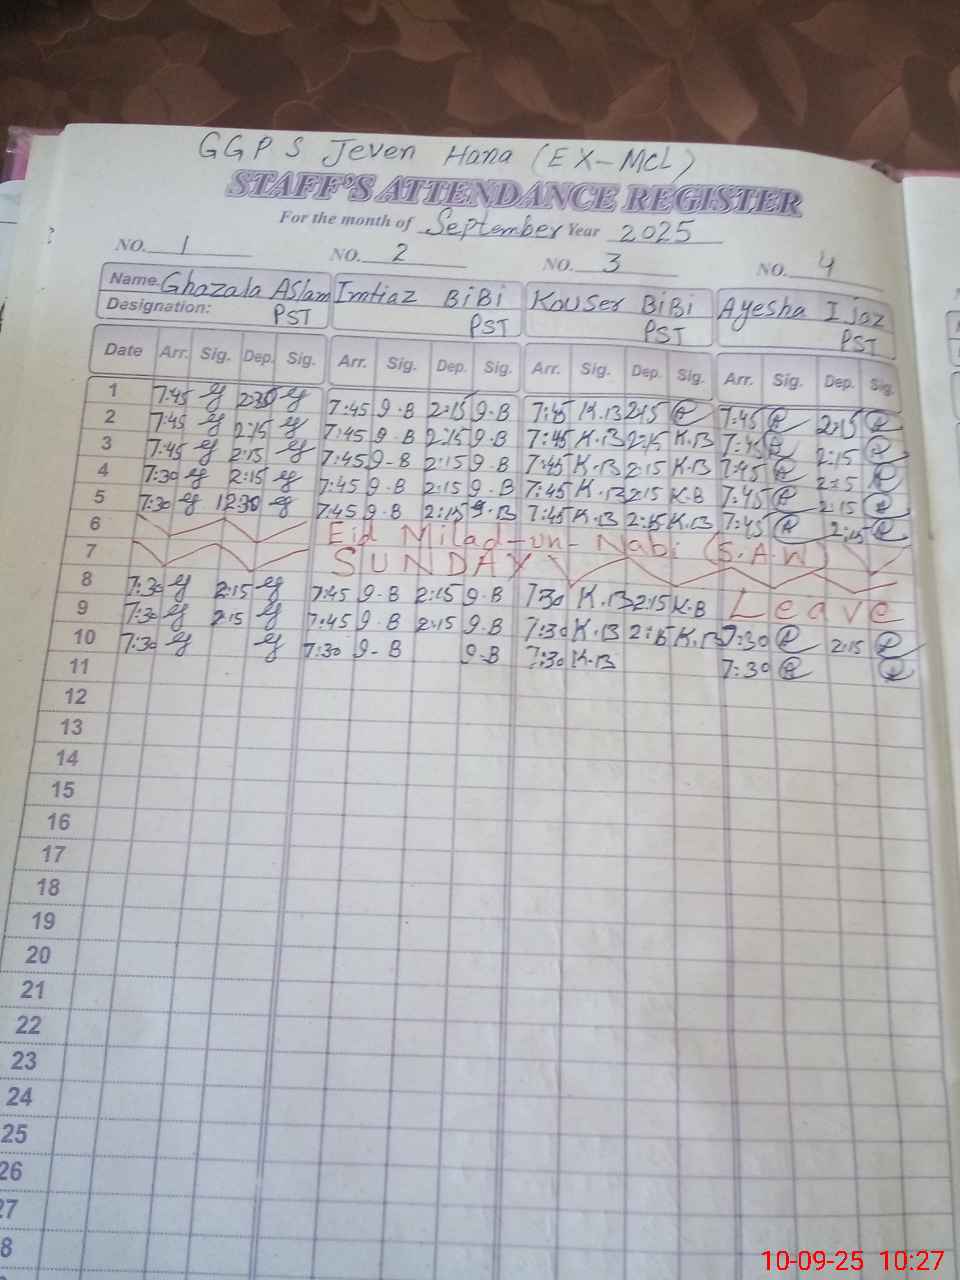 GGPS Jeven Hana (EX-MCL)
STAFF'S ATTENDANCE REGISTER
For the month of September Year 2025
NO. 1 NO. 2 NO. 3 NO. 4
Name Ghazala Aslam Imtiaz BiBi Kouser BiBi Ayesha Ijaz
Designation: PST PST PST PST
Date Arr. Sig. Dep. Sig. Arr. Sig. Dep. Sig. Arr. Sig. Dep. Sig. Arr. Sig. Dep. Sig.
1 7:45 7:45 9-B 2:15 9-B 7:45 K.B 2:15 7:45 2:15
2 7:45 2:15 7:45 9-B 2:15 9-B 7:45 K.B 2:15 K.B 7:45 2:15
3 7:45 2:15 7:45 9-B 2:15 9-B 7:45 K.B 2:15 K.B 7:45 2:15
4 7:30 2:15 7:45 9-B 2:15 9-B 7:45 K.B 2:15 K.B 7:45 2:15
5 7:30 12:30 7:45 9-B 2:15 9-B 7:45 K.B 2:15 K.B 7:45 2:15
6 Eid Milad-un-Nabi (S.A.W)
7 SUNDAY
8 7:30 2:15 7:45 9-B 2:15 9-B 730 K.B 2:15 K.B Leave
9 7:30 2:15 7:45 9-B 2:15 9-B 7:30 K.B 2:15 K.B 7:30 2:15
10 7:30 7:30 9-B 9-B 7:30 K.B 7:30
11
12
13
14
15
16
17
18
19
20
21
22
23
24
25
26
27
8
10-09-25 10:27